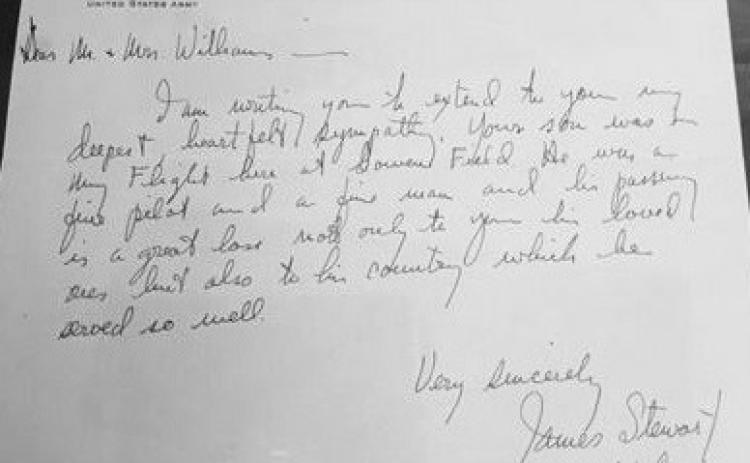 UNITED STATES ARMY
Dear Mr. & Mrs Williams —
I am writing you to extend to you my
deepest, heartfelt sympathy. Your son was in
my Flight here at Gowen Field He was a
fine pilot and a fine man and his passing
is a great loss not only to you his loved
ones but also to his country which he
served so well.
Very sincerely
James Stewart